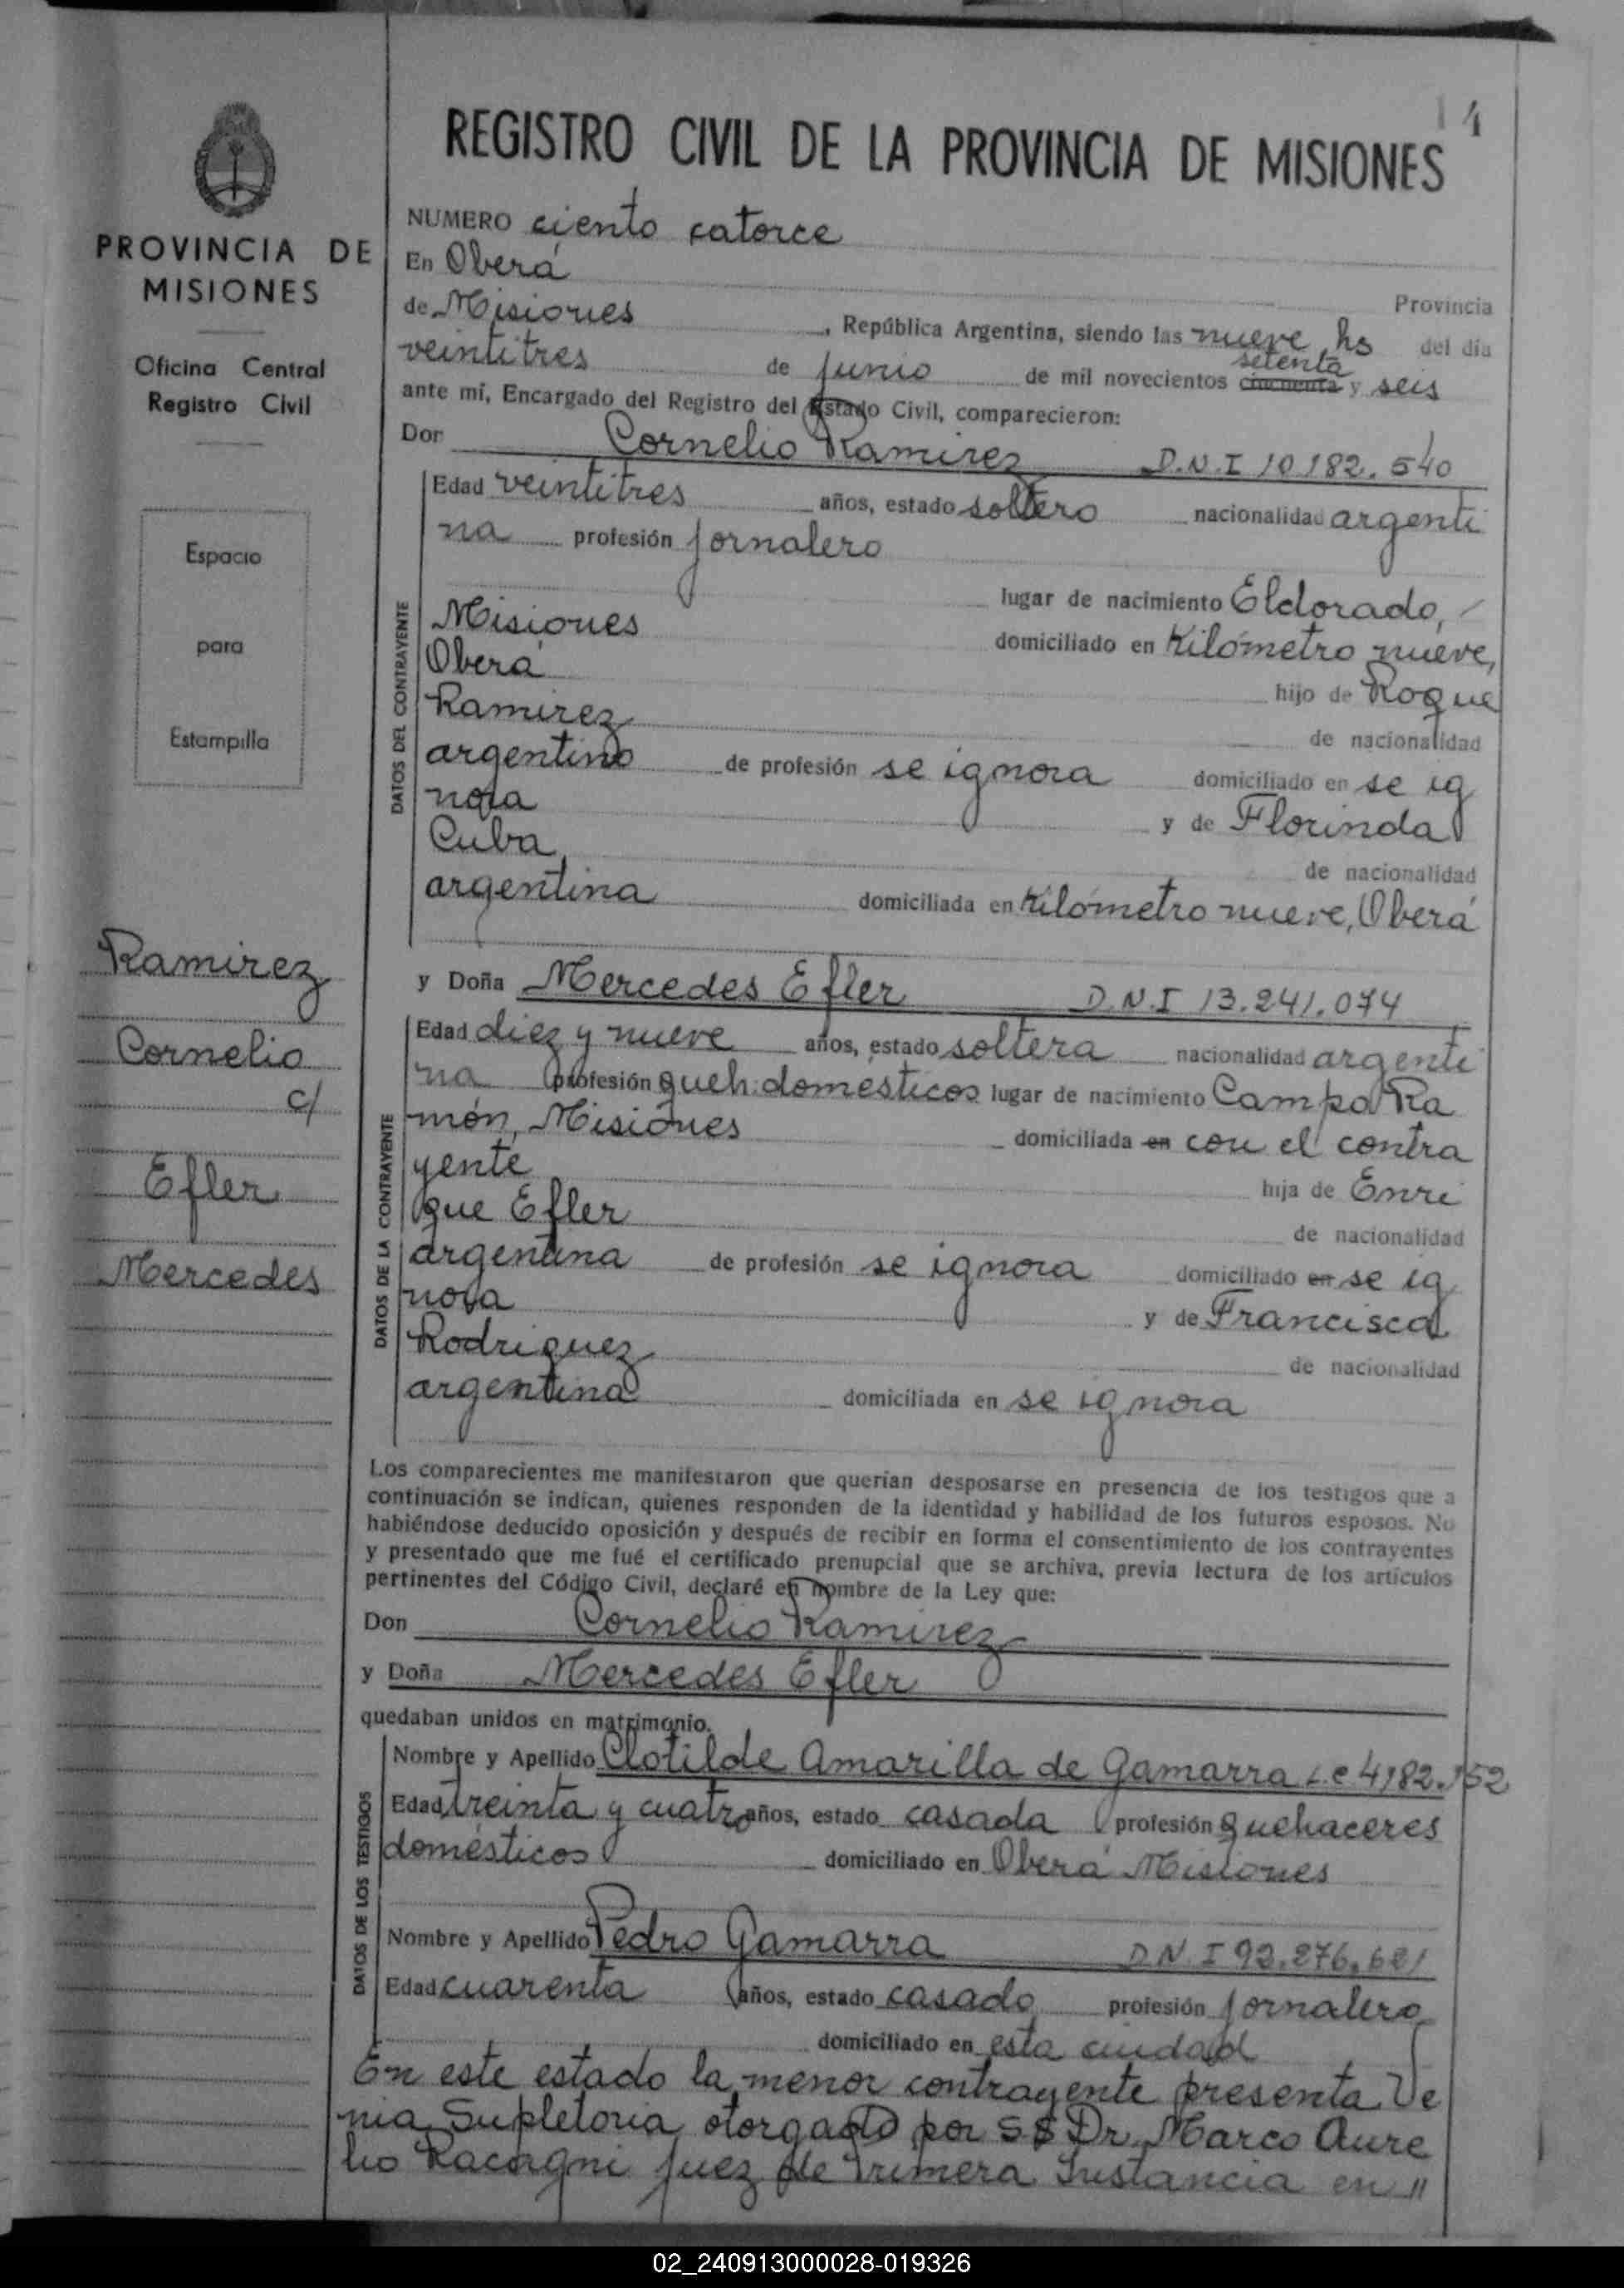 14
REGISTRO CIVIL DE LA PROVINCIA DE MISIONES
PROVINCIA DE
MISIONES
Oficina Central
Registro Civil
Espacio
para
Estampilla
Ramirez
Cornelio
c/
Efler
Mercedes
NUMERO ciento catorce
En Oberá Provincia
de Misiones, República Argentina, siendo las nueve hs del día
setenta
veintitres de junio de mil novecientos cincuenta y seis
ante mí, Encargado del Registro del Estado Civil, comparecieron:
Don Cornelio Ramirez D.N.I 10.182.540
DATOS DEL CONTRAYENTE
Edad veintitres años, estado soltero nacionalidad argenti
na profesión jornalero
lugar de nacimiento Eldorado,
Misiones domiciliado en Kilómetro nueve,
Oberá hijo de Roque
Ramirez de nacionalidad
argentino de profesión se ignora domiciliado en se ig
nora y de Florinda
Cuba, de nacionalidad
argentina domiciliada en Kilómetro nueve, Oberá
y Doña Mercedes Efler D.N.I 13.241.074
DATOS DE LA CONTRAYENTE
Edad diez y nueve años, estado soltera nacionalidad argenti
na profesión queh. domésticos lugar de nacimiento Campo Ra
món, Misiones domiciliada en con el contra
yente hija de Enri
que Efler de nacionalidad
argentina de profesión se ignora domiciliado en se ig
nora y de Francisca
Rodriguez de nacionalidad
argentina domiciliada en se ignora
Los comparecientes me manifestaron que querían desposarse en presencia de los testigos que a
continuación se indican, quienes responden de la identidad y habilidad de los futuros esposos. No
habiéndose deducido oposición y después de recibir en forma el consentimiento de los contrayentes
y presentado que me fué el certificado prenupcial que se archiva, previa lectura de los artículos
pertinentes del Código Civil, declaré en nombre de la Ley que:
Don Cornelio Ramirez
y Doña Mercedes Efler
quedaban unidos en matrimonio.
DATOS DE LOS TESTIGOS
Nombre y Apellido Clotilde Amarilla de Gamarra L.C 4182.152
Edad treinta y cuatro años, estado casada profesión quehaceres
domésticos domiciliado en Oberá Misiones
Nombre y Apellido Pedro Gamarra D.N.I 92.276.621
Edad cuarenta años, estado casado profesión jornalero
domiciliado en esta ciudad
En este estado la menor contrayente presenta Ve
nia Supletoria otorgada por S.S Dr. Marco Aure
lio Racagni juez de Primera Instancia en "
02_240913000028-019326